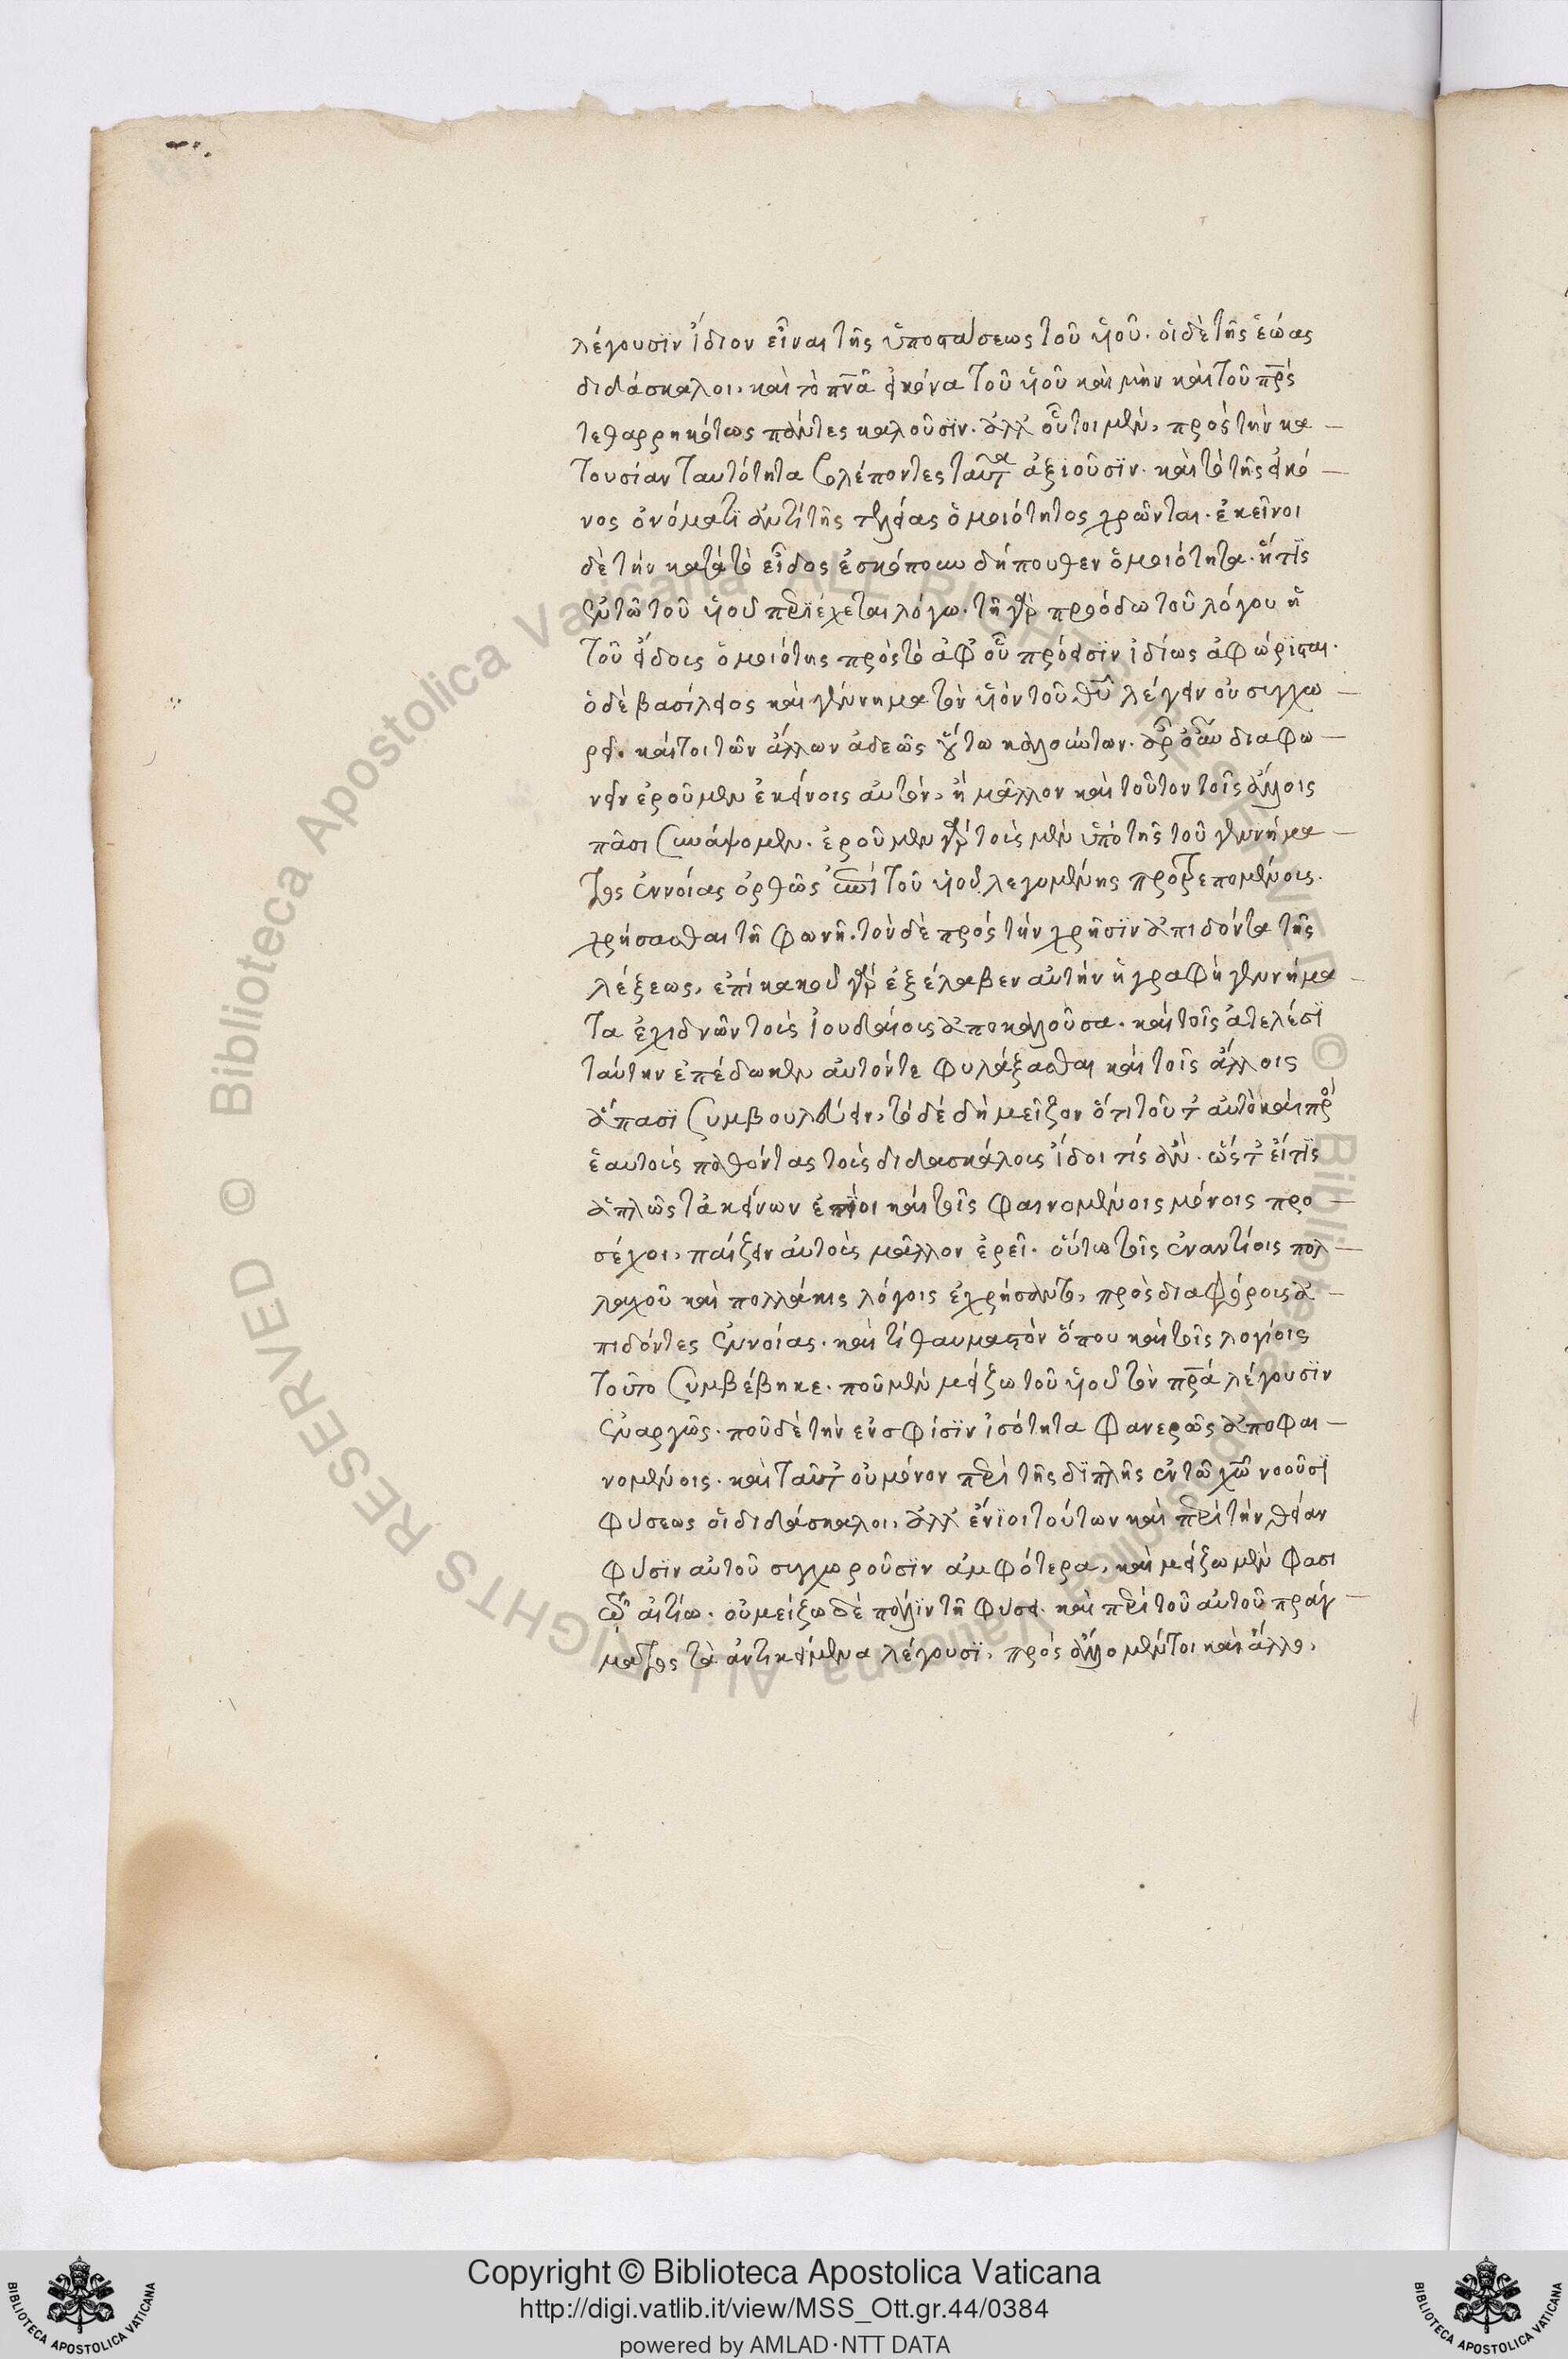 λέγουσϊν ἴδιον εἶναι τῆς ὑποστάσεως τοῦ υἱοῦ. οἱ δὲ τῆς ἑώας
διδάσκαλοι, καὶ τὸ πνᾶ εἰκόνα τοῦ υἱοῦ καὶ μὴν καὶ τοῦ πρς
τεθαρρηκότως πάντες καλοῦσϊν. ἀλλ' οὗτοι μὲν, πρὸς τὴν κα
τουσίαν ταυτότητα βλέποντες ταῦτα ἀξιοῦσϊν. καὶ τῷ τῆς εἰκό
νος ὀνόματϊ ἀντὶ τῆς τελείας ὁμοιότητος χρῶνται. ἐκεῖνοι
δὲ τὴν κατὰ τὸ εἶδος ἐσκόπουν δήπουθεν ὁμοιότητα. ἥτϊς
ἐν τῶ τοῦ υἱοῦ περϊέχεται λόγω. τῆ γὰρ προόδω τοῦ λόγου ἡ
τοῦ εἴδους ὁμοιότης πρὸς τὸ ἀφ' οὗ πρόεισϊν ἰδίως ἀφώρϊσται.
ὁ δὲ βασίλειος καὶ γέννημα τὸν υἱὸν τοῦ θυ λέγειν οὐ συγχω
ρεῖ. καίτοι τῶν ἄλλων ἀδεῶς οὕτω καλούντων. ἆρ' οὖν διαφω
νεῖν ἐροῦμεν ἐκείνοις αὐτὸν, ἢ μᾶλλον καὶ τοῦτον τοῖς ἄλλοις
πᾶσι συνάψομεν. ἐροῦμεν γὰρ τοὺς μὲν ὑπὸ τῆς τοῦ γεννήμα
τος ἐννοίας ὀρθῶς ἐπὶ τοῦ υἱοῦ λεγομένης προτρεπομένους.
χρήσασθαι τῆ φωνῆ. τὸν δὲ πρὸς τὴν χρῆσϊν ἀπιδόντα τῆς
λέξεως, ἐπὶ κακοῦ γὰρ ἐξέλαβεν αὐτὴν ἡ γραφὴ γεννήμα
τα ἐχιδνῶν τοὺς ἰουδαίους ἀποκαλοῦσα. καὶ τοῖς ἀτελέσϊ
ταύτην ἐπέδωκεν αὐτόντε φυλάξασθαι καὶ τοῖς ἄλλοις
ἅπασϊ συμβουλεύειν, τὸ δὲ δὴ μεῖζον ὅτι τοῦτ' αὐτὸ καὶ πρὸς
ἑαυτοὺς παθόντας τοὺς διδασκάλους ἴδοι τίς ἂν. ὥστ' εἴ τϊς
ἁπλῶς τὰ κείνων ἐπίοι καὶ τοῖς φαινομένοις μόνοις προ
σέχοι, παίζειν αὐτοὺς μᾶλλον ἐρεῖ. οὕτω τοῖς ἐναντίοις πολ
λαχοῦ καὶ πολλάκις λόγοις ἐχρήσαντο, πρὸς διαφόρους ἀ
πιδόντες ἐννοίας. καὶ τί θαυμαστὸν ὅπου καὶ τοῖς λογίοις
τοῦτο συμβέβηκε. ποῦ μὲν μείζω τοῦ υἱοῦ τὸν πρα λέγουσϊν
ἐναργῶς. ποῦ δὲ τὴν ἐν σφίσϊν ἰσότητα φανερῶς ἀποφαι
νομένοις. καὶ ταῦτ' οὐ μόνον περὶ τῆς δϊπλῆς ἐν τῶ χω νοοῦσϊ
φύσεως οἱ διδάσκαλοι, ἀλλ' ἔνϊοι τούτων καὶ περὶ τὴν θείαν
φύσϊν αὐτοῦ συγχωροῦσϊν ἀμφότερα, καὶ μείζω μὲν φασι
τῶ αἰτίω. οὐ μείζω δὲ πάλϊν τῆ φύσει. καὶ περὶ τοῦ αὐτοῦ πράγ
ματος τὰ ἀντικείμενα λέγουσϊ, πρὸς ἄλλο μέντοι καὶ ἄλλο,
Copyright © Biblioteca Apostolica Vaticana
http://digi.vatlib.it/view/MSS_Ott.gr.44/0384
powered by AMLAD·NTT DATA